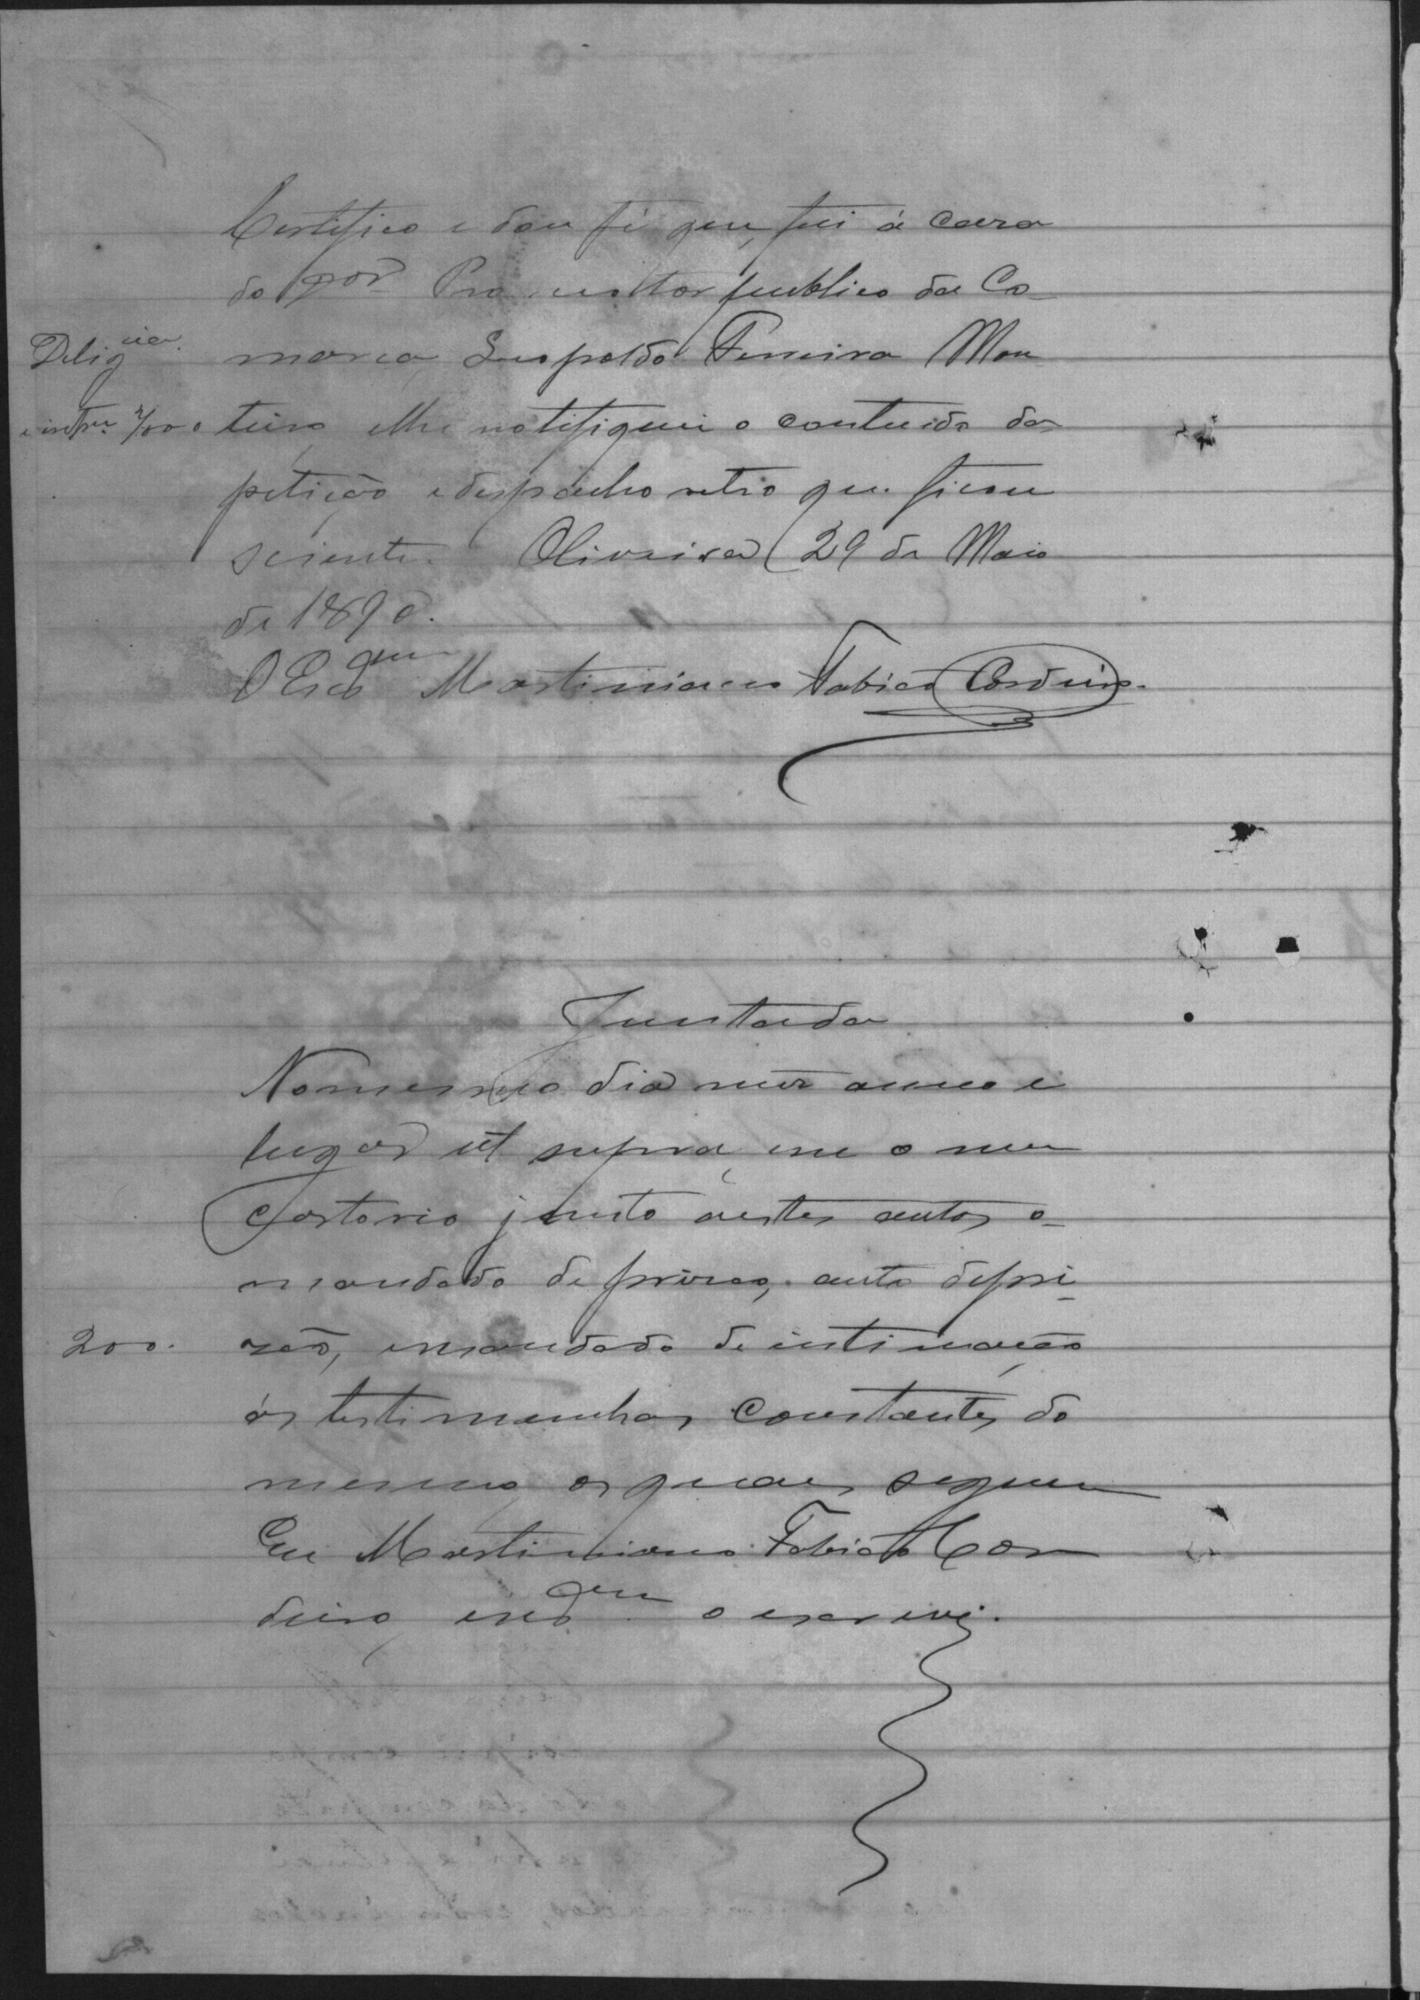 Certifico e dou fé que, fui á casa
do Promottor publico da Co-
Delig.cia marca, Leopoldo Ferreira Mon
teiro e lhe notifiquei o contuido da
petição e despacho retro que ficou
sciente. Oliveira 29 de Maio
de 1890.
O Escm Martiniano Fabião Cordeiro.
Juntada
No mesmo dia mez anno e
lugar ut supra, em o meu
Cartorio junto a estes autos o
mandado de prizão, auto de pri-
200. zão, e mandado de intimação
ás testimunhas constantes do
mesmo, os quaes seguem
Eu Martiniano Fabião Cor
deiro, o escrevi.